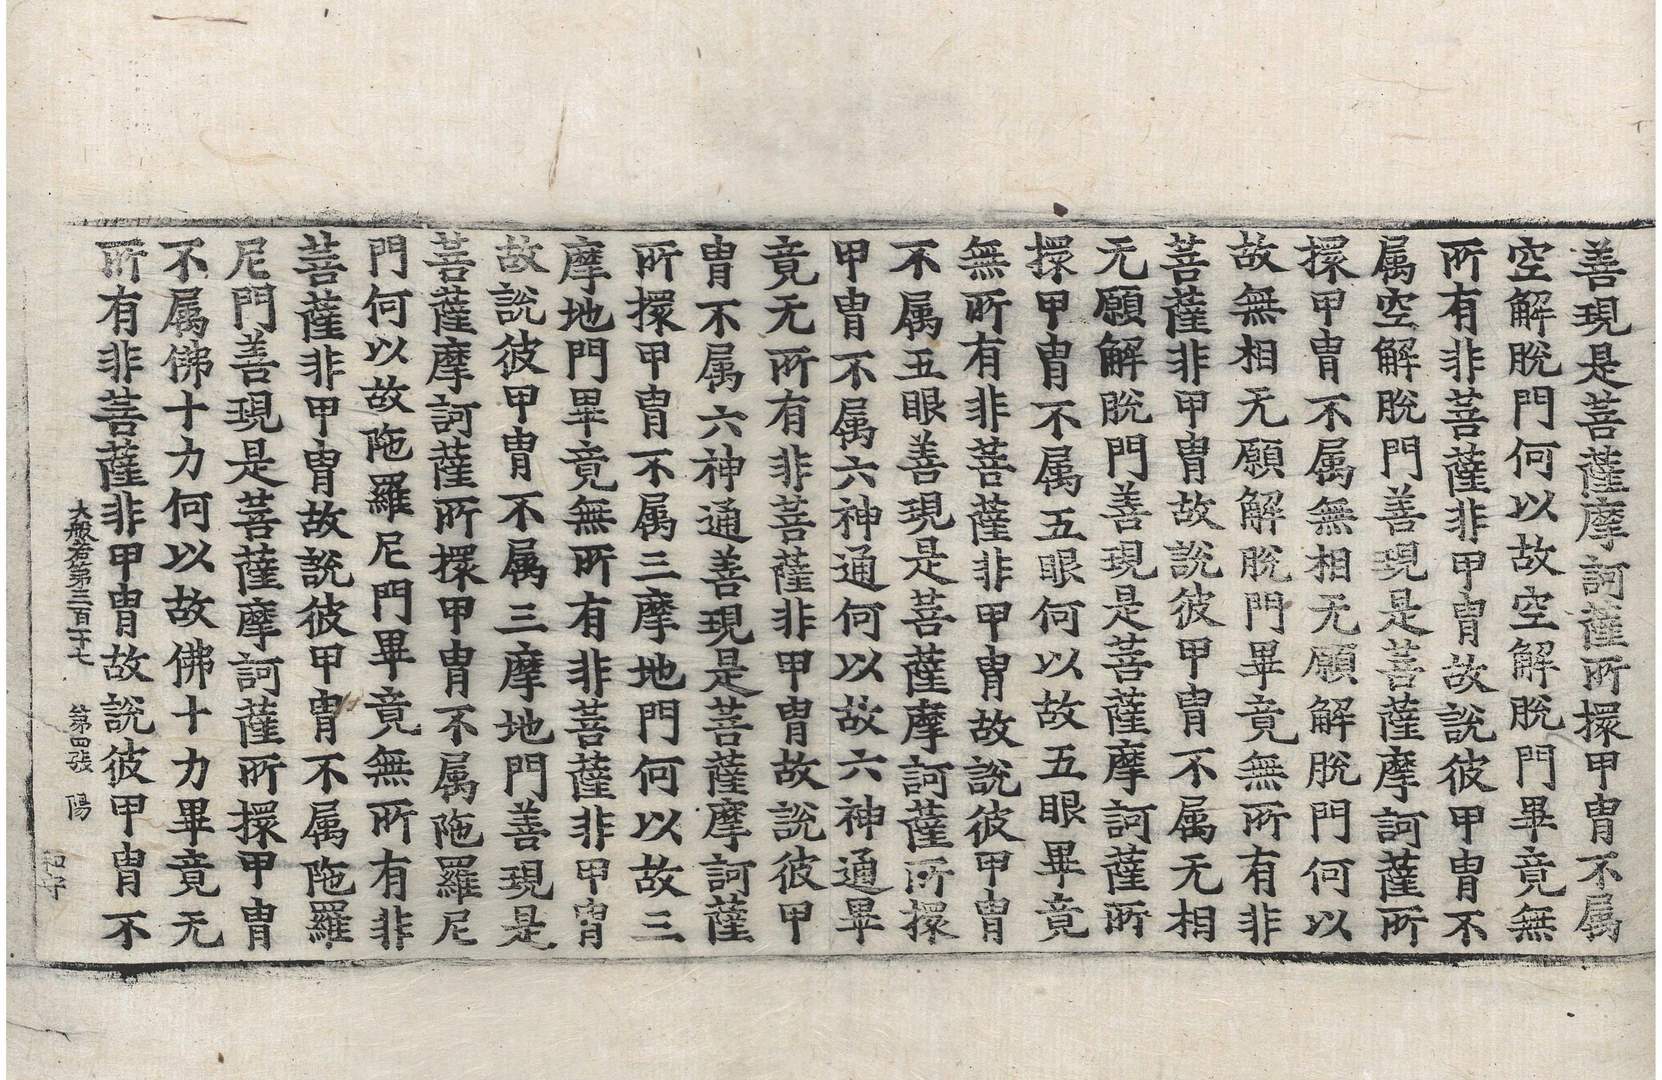 善現是菩薩摩訶薩所擐甲冑不属
空解脫門何以故空解脫門畢竟無
所有非菩薩非甲冑故說彼甲冑不
属空解脫門善現是菩薩摩訶薩所
擐甲冑不属無相无願解脫門何以
故無相无願解脫門畢竟無所有非
菩薩非甲冑故說彼甲冑不属无相
无願解脫門善現是菩薩摩訶薩所
擐甲冑不属五眼何以故五眼畢竟
無所有非菩薩非甲冑故說彼甲冑
不属五眼善現是菩薩摩訶薩所擐
甲冑不属六神通何以故六神通畢
竟无所有非菩薩非甲冑故說彼甲
冑不属六神通善現是菩薩摩訶薩
所擐甲冑不属三摩地門何以故三
摩地門畢竟無所有非菩薩非甲冑
故說彼甲冑不属三摩地門善現是
菩薩摩訶薩所擐甲冑不属陁羅尼
門何以故陁羅尼門畢竟無所有非
菩薩非甲冑故說彼甲冑不属陁羅
尼門善現是菩薩摩訶薩所擐甲冑
不属佛十力何以故佛十力畢竟无
所有非菩薩非甲冑故說彼甲冑不
大般若第三百二十七 第四張 陽